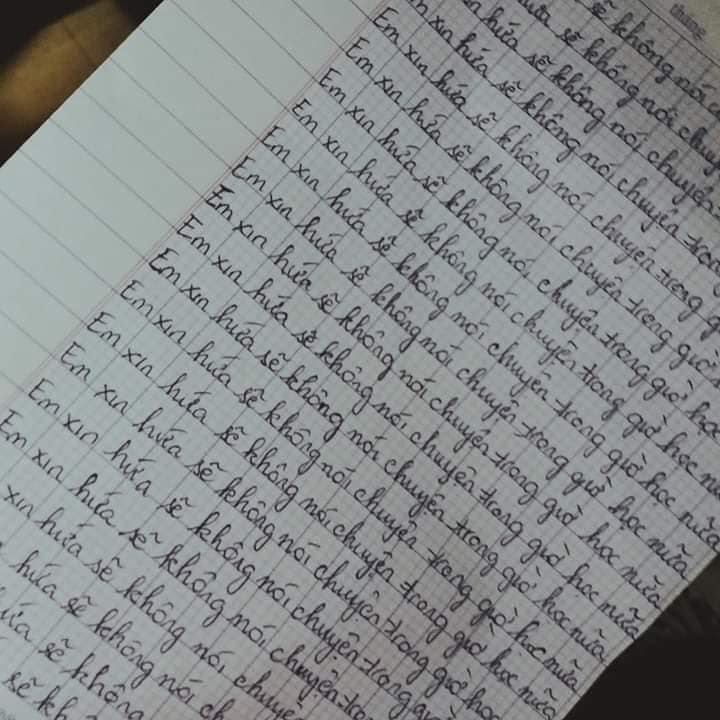 tháng
sẽ không nói
hứa sẽ không nói chuy
xin hứa sẽ không nói chuyện
Em xin hứa sẽ không nói chuyện trong
Em xin hứa sẽ không nói chuyện trong
Em xin hứa sẽ không nói chuyện trong giờ
Em xin hứa sẽ không nói chuyện trong giờ học
Em xin hứa sẽ không nói chuyện trong giờ học
Em xin hứa sẽ không nói chuyện trong giờ học nữa
Em xin hứa sẽ không nói chuyện trong giờ học nữa
Em xin hứa sẽ không nói chuyện trong giờ học nữa
Em xin hứa sẽ không nói chuyện trong giờ học nữa
Em xin hứa sẽ không nói chuyện trong giờ học nữa
Em xin hứa sẽ không nói chuyện trong giờ học nữa
Em xin hứa sẽ không nói chuyện trong giờ học
Em xin hứa sẽ không nói chuyện trong giờ
Em xin hứa sẽ không nói chuyện tro
xin hứa sẽ không nói chuyện
hứa sẽ không nói ch
hứa sẽ không
sẽ kh